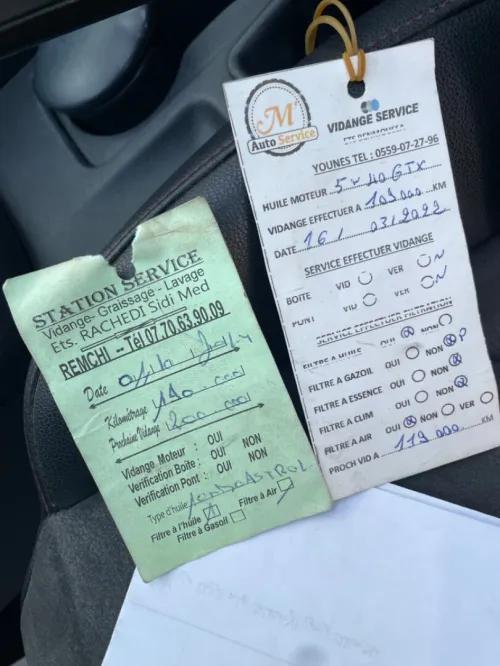 STATION SERVICE
Vidange - Graissage - Lavage
Ets. RACHEDI Sidi Med
REMCHI -- Tél 07.70.63.90.09
Date
Kilométrage 190 000
Prochaine Vidange 200 000
Vidange Moteur : OUI NON
Verification Boite : OUI NON
Verification Pont : OUI NON
Type d'huile
Filtre à l'huile Filtre à Air
Filtre à Gasoil
M
Auto Service
VIDANGE SERVICE
YOUNES TEL : 0559-07-27-96
HUILE MOTEUR 5w40 GTX
VIDANGE EFFECTUER A 109 000 KM
DATE 16 / 03/2022
SERVICE EFFECTUER VIDANGE
BOITE VID VER N
PONT VID VER N
SERVICE EFFECTUER FILTRATION
FILTRE A HUILE OUI NON
FILTRE A GAZOIL OUI NON
FILTRE A ESSENCE OUI NON
FILTRE A CLIM OUI NON
FILTRE A AIR OUI NON VER
PROCH VID A 119 000 KM